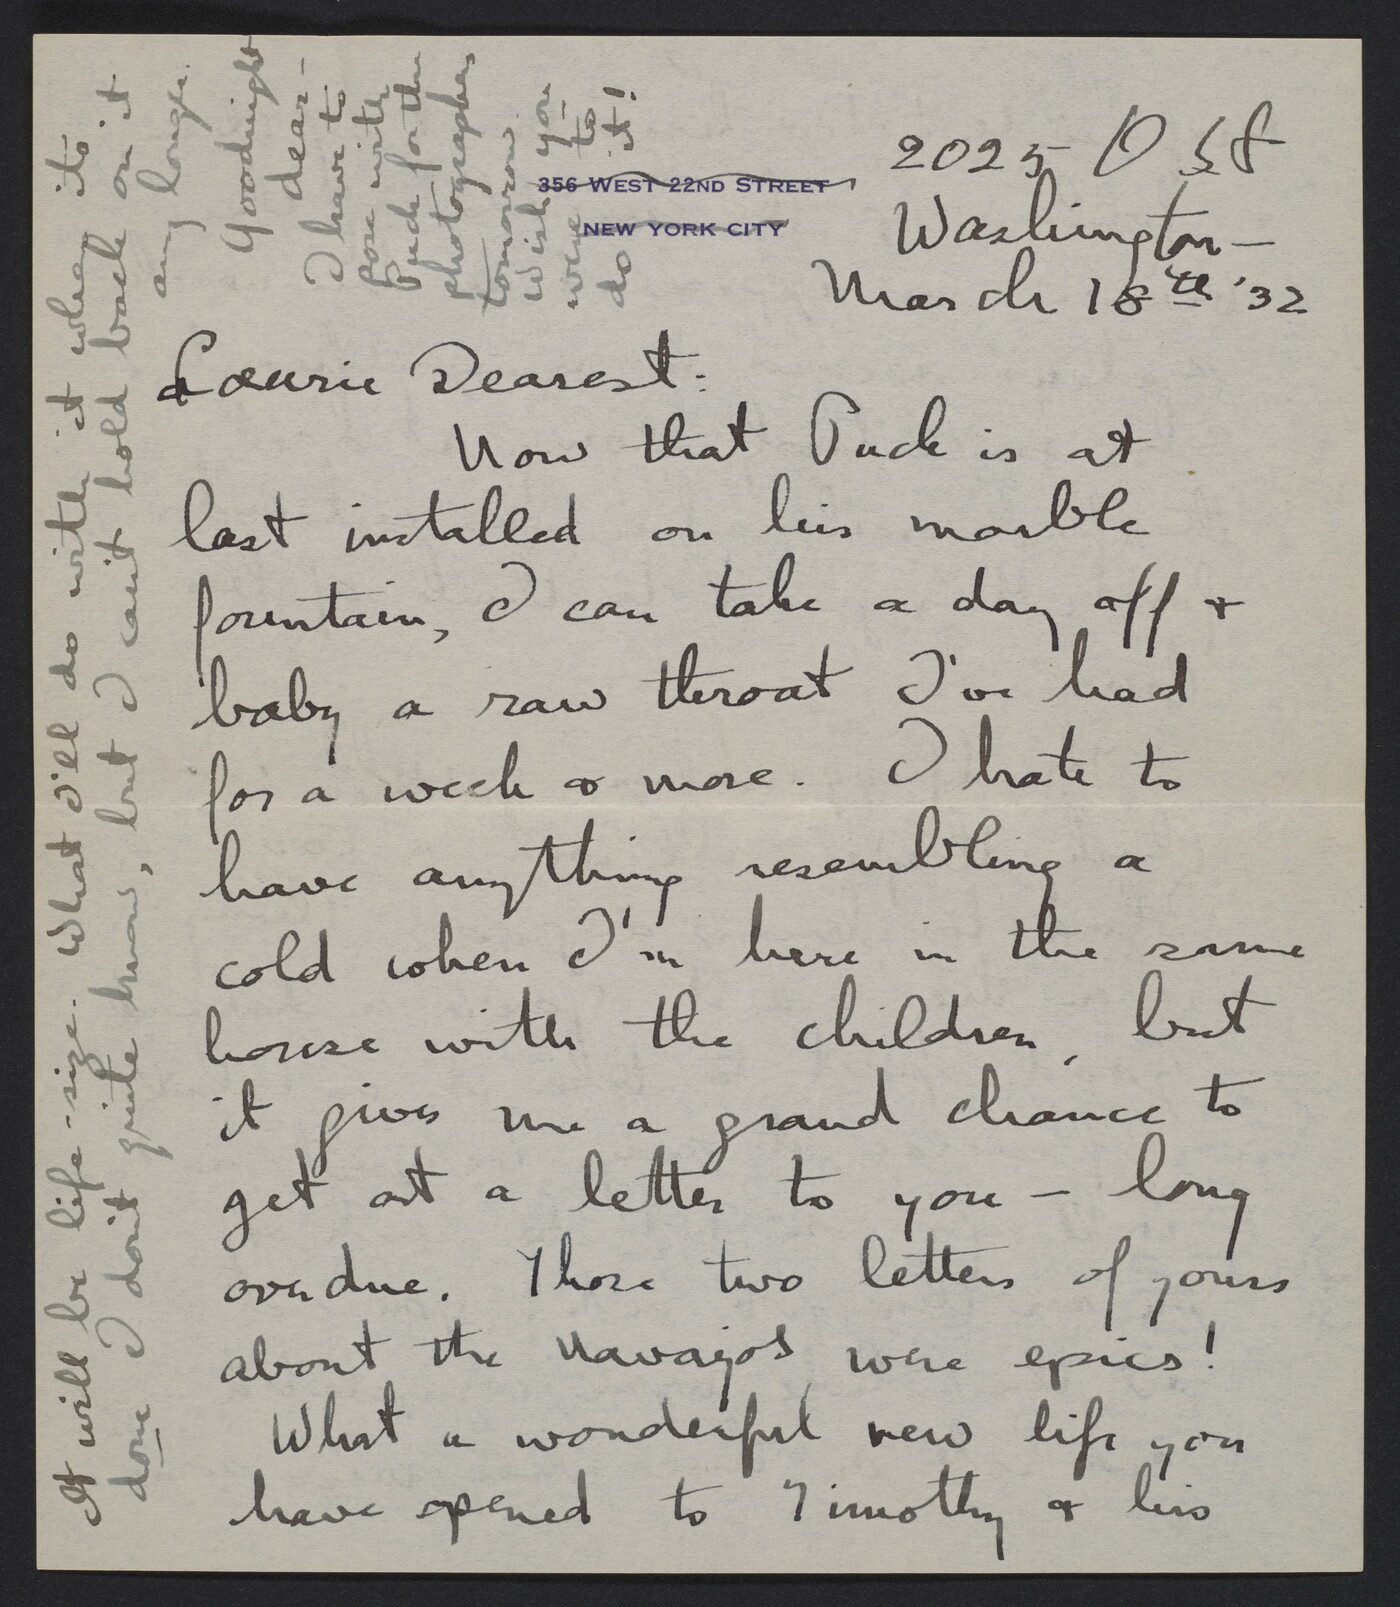 356 WEST 22ND STREET
NEW YORK CITY
2025 O St
Washington—
March 18th '32
Laurie Dearest:
Now that Puck is at
last installed on his marble
fountain, I can take a day off &
baby a raw throat I've had
for a week & more. I hate to
have anything resembling a
cold when I'm here in the same
house with the children, but
it gives me a grand chance to
get at a letter to you — long
overdue. Those two letters of yours
about the Navajos were epics!
What a wonderful new life you
have opened to Timothy & his
It will be life-size. What I'll do with it when it's
done I don't quite know, but I can't hold back on it
any longer.
Goodnight
dear—
I have to
pose with
Puck for the
photographers
tomorrow.
Wish you
were to
do it!